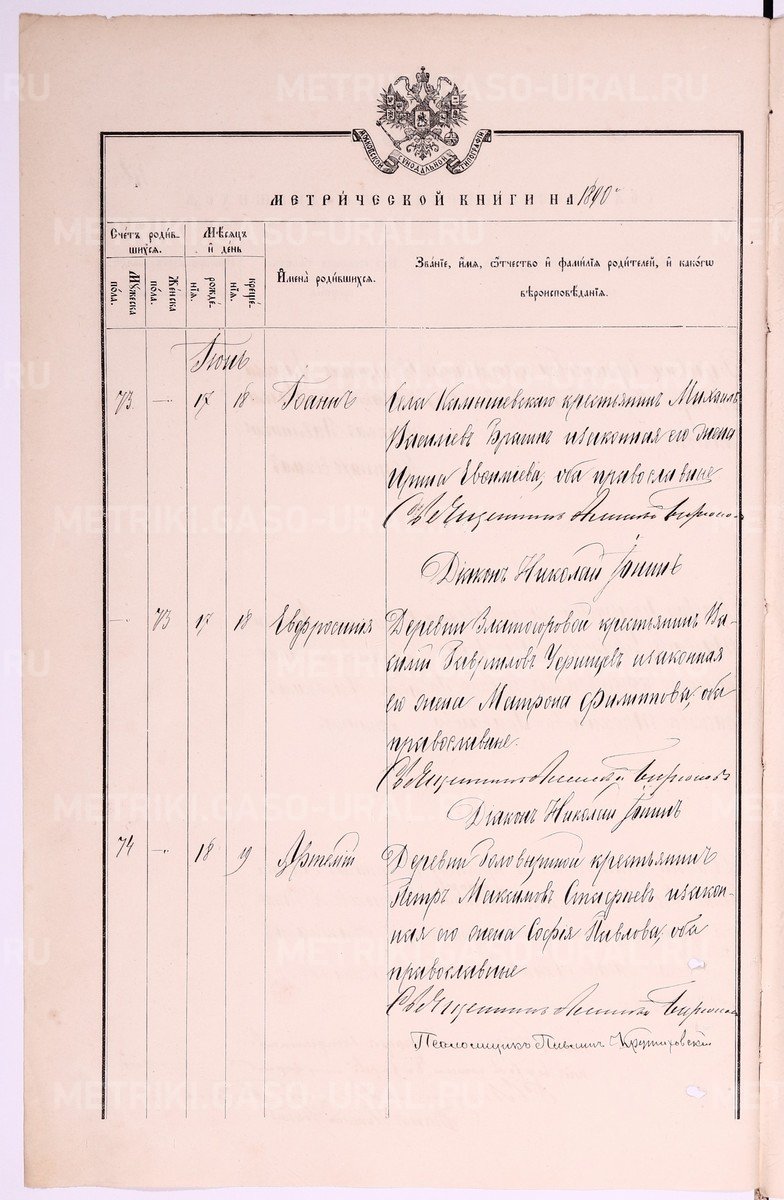 METRIKI.GASO-URAL.RU
МОСКОВСКОЙ СѴНОДАЛЬНОЙ ТИПОГРАФІИ
МЕТРИ́ЧЕСКОЙ КНИГИ НА 1890 г
Сче́тъ роди́в-
шихся.
Му́жеска
по́ла.
Же́нска
по́ла.
Мѣ́сяцъ
и де́нь
рожде́-
нія.
креще́-
нія.
Имена̀ роди́вшихся.
Зва́ніе, и́мя, ѻ҆́тчество и҆ фами́лія роди́телей, и҆ како́гѡ
вѣроисповѣ́данія.
Іюнь
73. — 17 18 Іоаннъ
Села Камышевскаго крестьянинъ Михаилъ
Василіевъ и законная его жена
Ирина Евѳиміева, оба православные
Священникъ
Діаконъ Николай
— 73 17 18 Евфросинія
Деревни Златогоровой крестьянинъ Ва-
силій Гавриловъ и законная
его жена Матрона Филиппова, оба
православные.
Священникъ
Діаконъ Николай
74 — 18 19 Артемій
Деревни Головыриной крестьянинъ
Петръ Максимовъ и закон-
ная его жена Софія Павлова, оба
православные
Священникъ
Псаломщикъ Крутиховскій